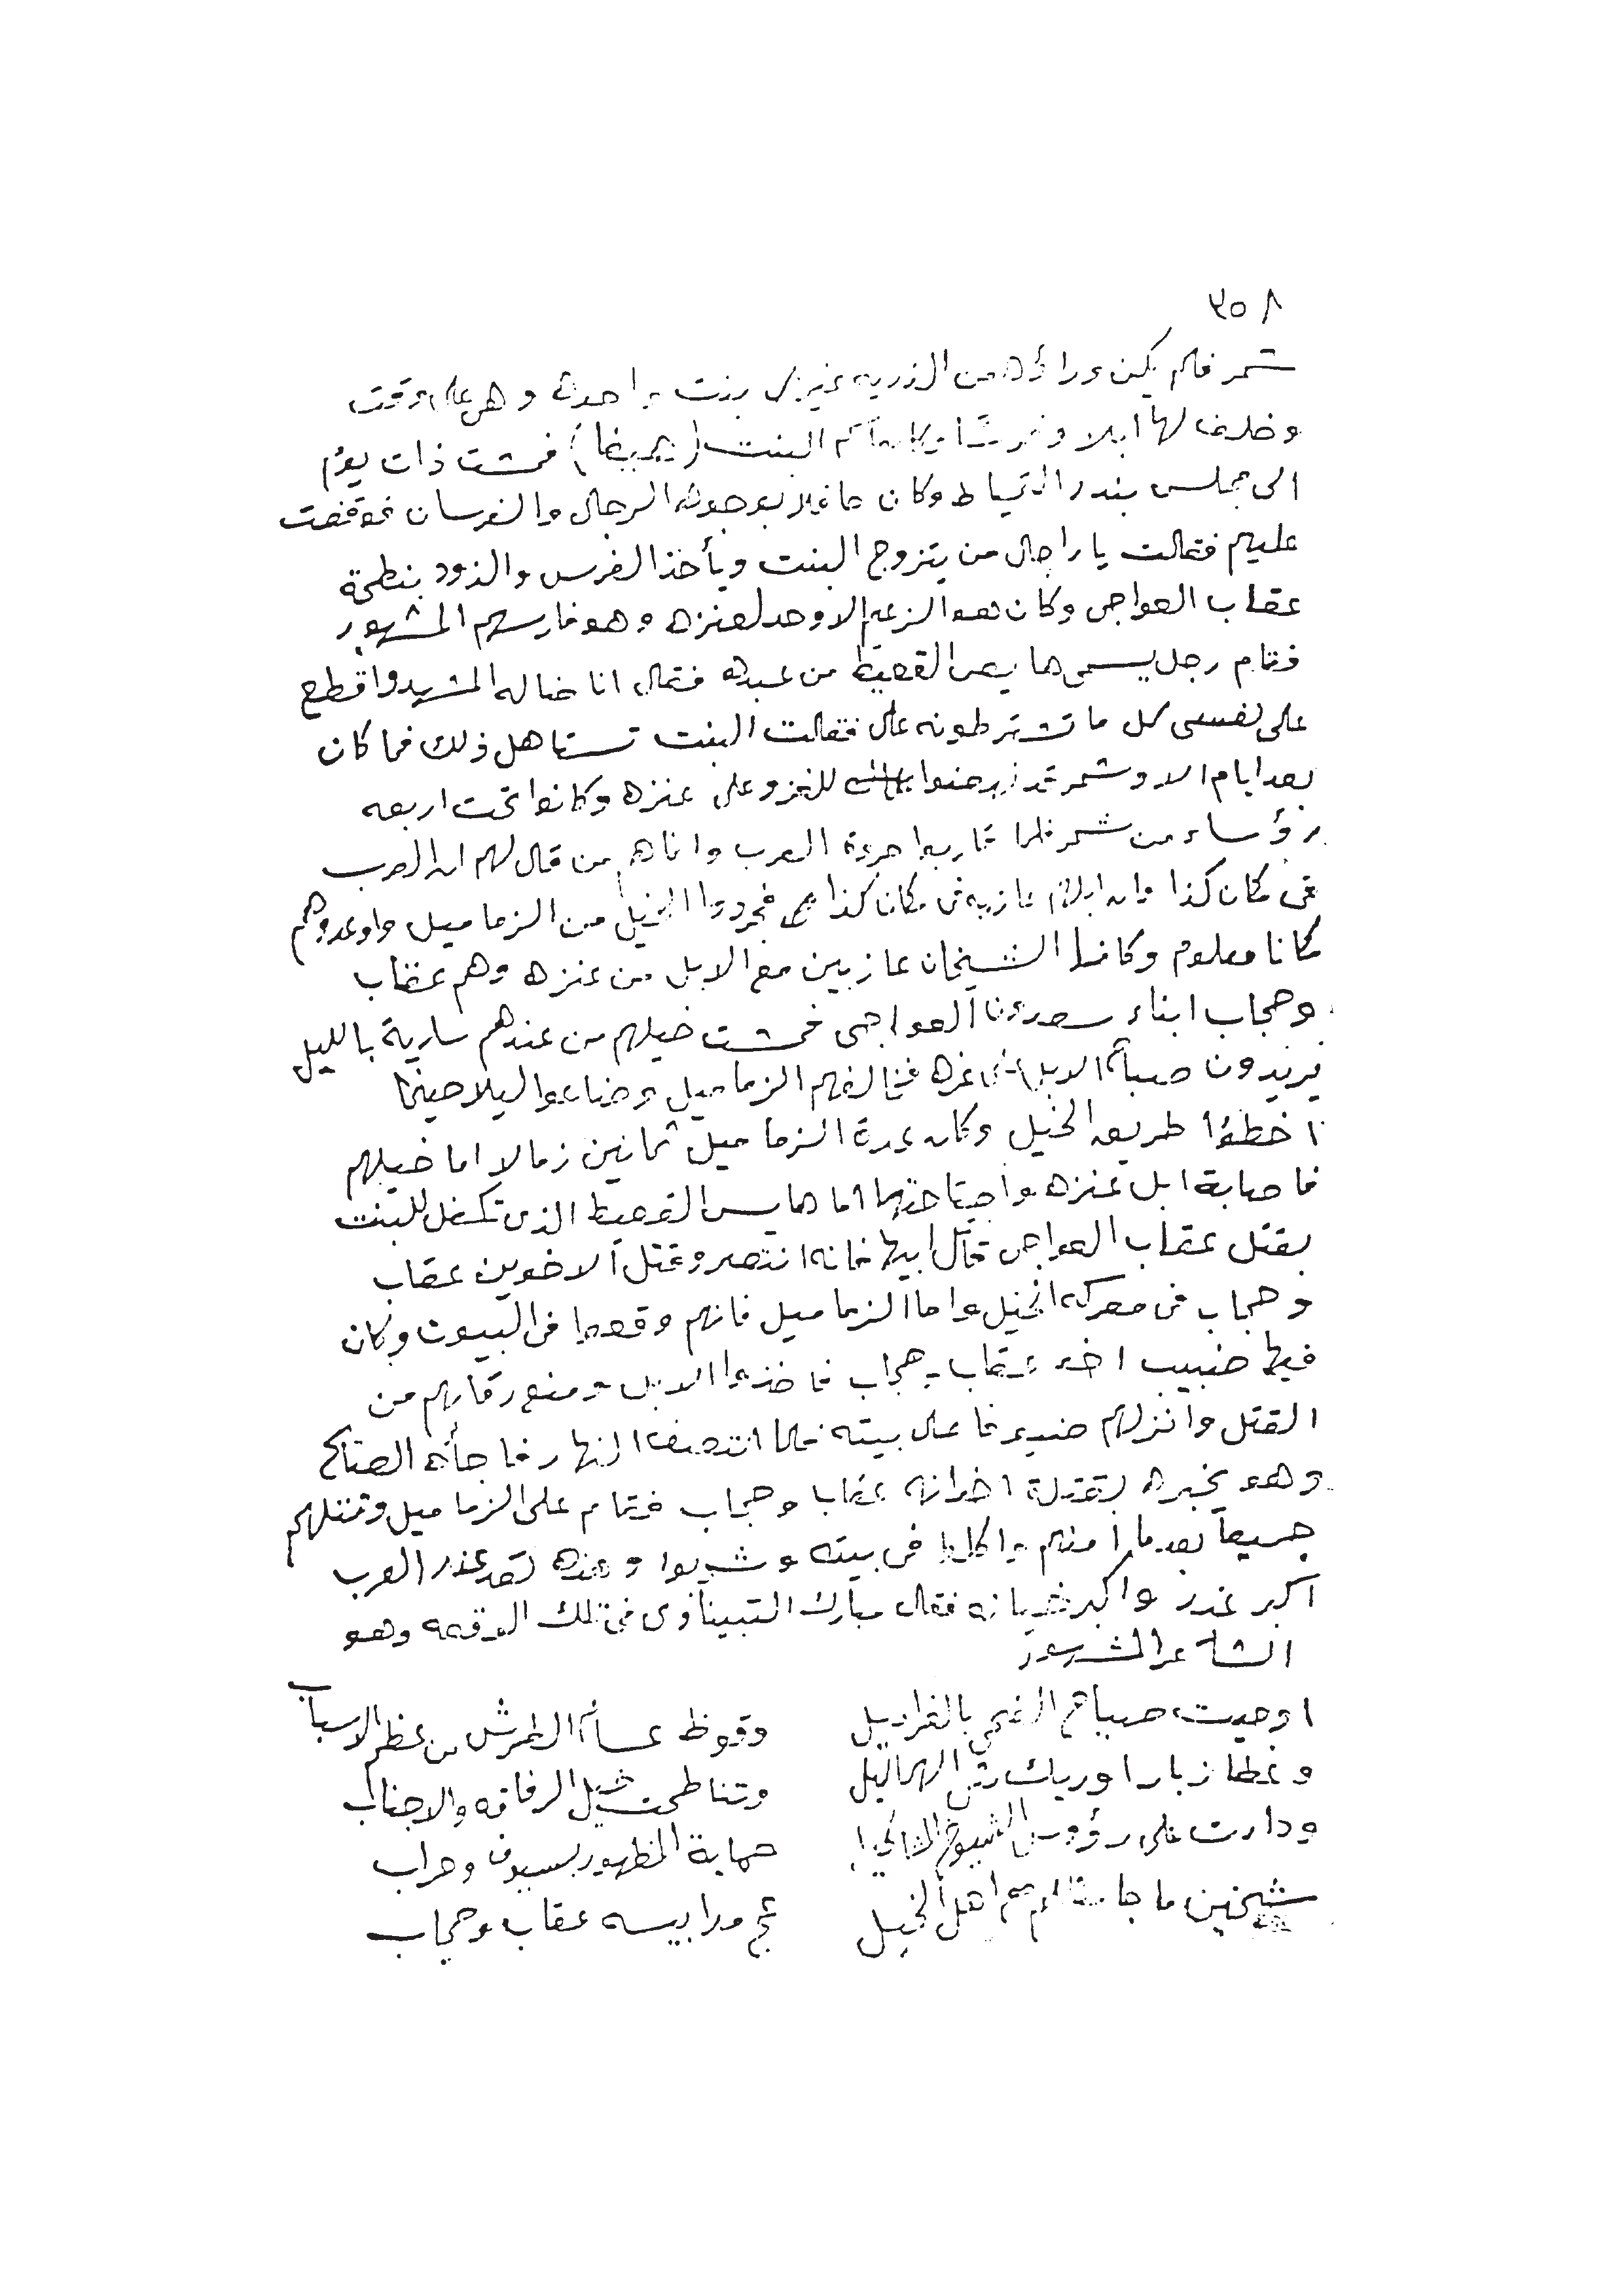 ٣٥٨
شمر فلم يكن وراؤه من الذريه غير بنت واحده وهي على وقت
وخلف لها ابلا وفرسا وكان اسم البنت فمشت ذات يوم
الى مجلس بندر التمياط وكان حافلا بوجوه الرجال والفرسان فوقفت
عليهم فقالت يا راجال من يتزوج البنت ويأخذ الفرس والذود بنطحة
عقاب العواجي وكان هو الزعيم الاوحد لعنزه وهو فارسهم المشهور
فقام رجل يسمى هايس القعيط من عبده فقال انا خياله المشهيد واقطع
على نفسي كل ما تشترطونه علي فقالت البنت تستاهل ذلك فما كان
بعد ايام الا وشمر قد نهضوا للغزو على عنزه وكانوا تحت اربعه
رؤساء من شمر فلما قاربوا حروة العرب واتاهم من قال لهم ان العرب
في مكان كذا وان ابلهم عازبه في مكان كذا فجردوا الخيل من الزماميل واوعدوهم
مكانا معلوم وكانوا الشيخان عازبين مع الابل من عنزه وهم عقاب
وحجاب ابناء سعدون العواجي فمشت خيلهم من عندهم سارية بالليل
يريدون صباح الابل في غره فخالفهم الزماميل وضاعوا ليلا حينما
اخطؤا طريق الخيل وكان عدة الزماميل ثمانين زمالا اما خيلهم
فاصابة ابل عنزه واجتاحتها اما هايس القعيط الذي تكفل للبنت
بقتل عقاب العواجي قاتل ابيها فانه انتصر وقتل الاخوين عقاب
وحجاب في معركه الخيل واما الزماميل فانهم وقعوا في البيوت وكان
فيها ضبيب اخو عقاب وحجاب فاخذوا الابل ومنع رقابهم من
القتل وانزلهم ضيوفا على بيته فلما انتصف النهار فاجأه الصائح
وهو يخبره بقتلة اخوانه عقاب وحجاب فقام على الزماميل وقتلهم
جميعا بعد ما امنهم واكلوا في بيته وشربوا وهذه تعد عند العرب
اكبر غدر واكبر خيانه فقال مبارك التبيناوي في تلك الوقعه وهو
الشاعر المشهور
اوجيت صياح الضحي بالغراديل    وقوظ عساك الطرش من عظم الاسباب
وغطا زبارا وريك الهماليل    وتناطحت خيل الرفاقه والاجناب
ودارت على رؤوس الشيوخ    حماية الظهور بسيوف وحراب
شيخين ما جا اهل الخيل    عقاب وحجاب